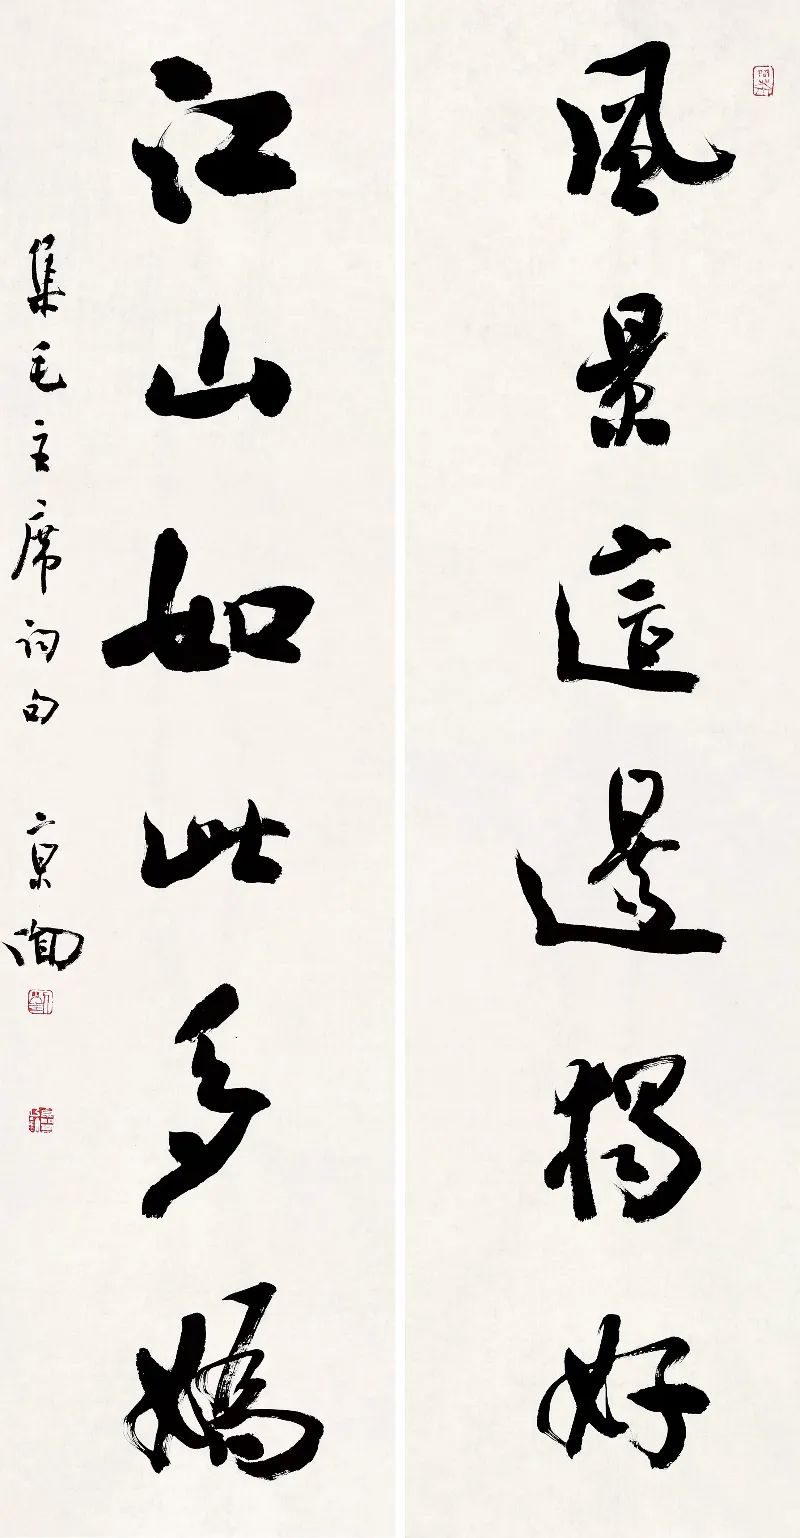 風景這邊獨好
江山如此多嬌
集毛主席詞句 京聞